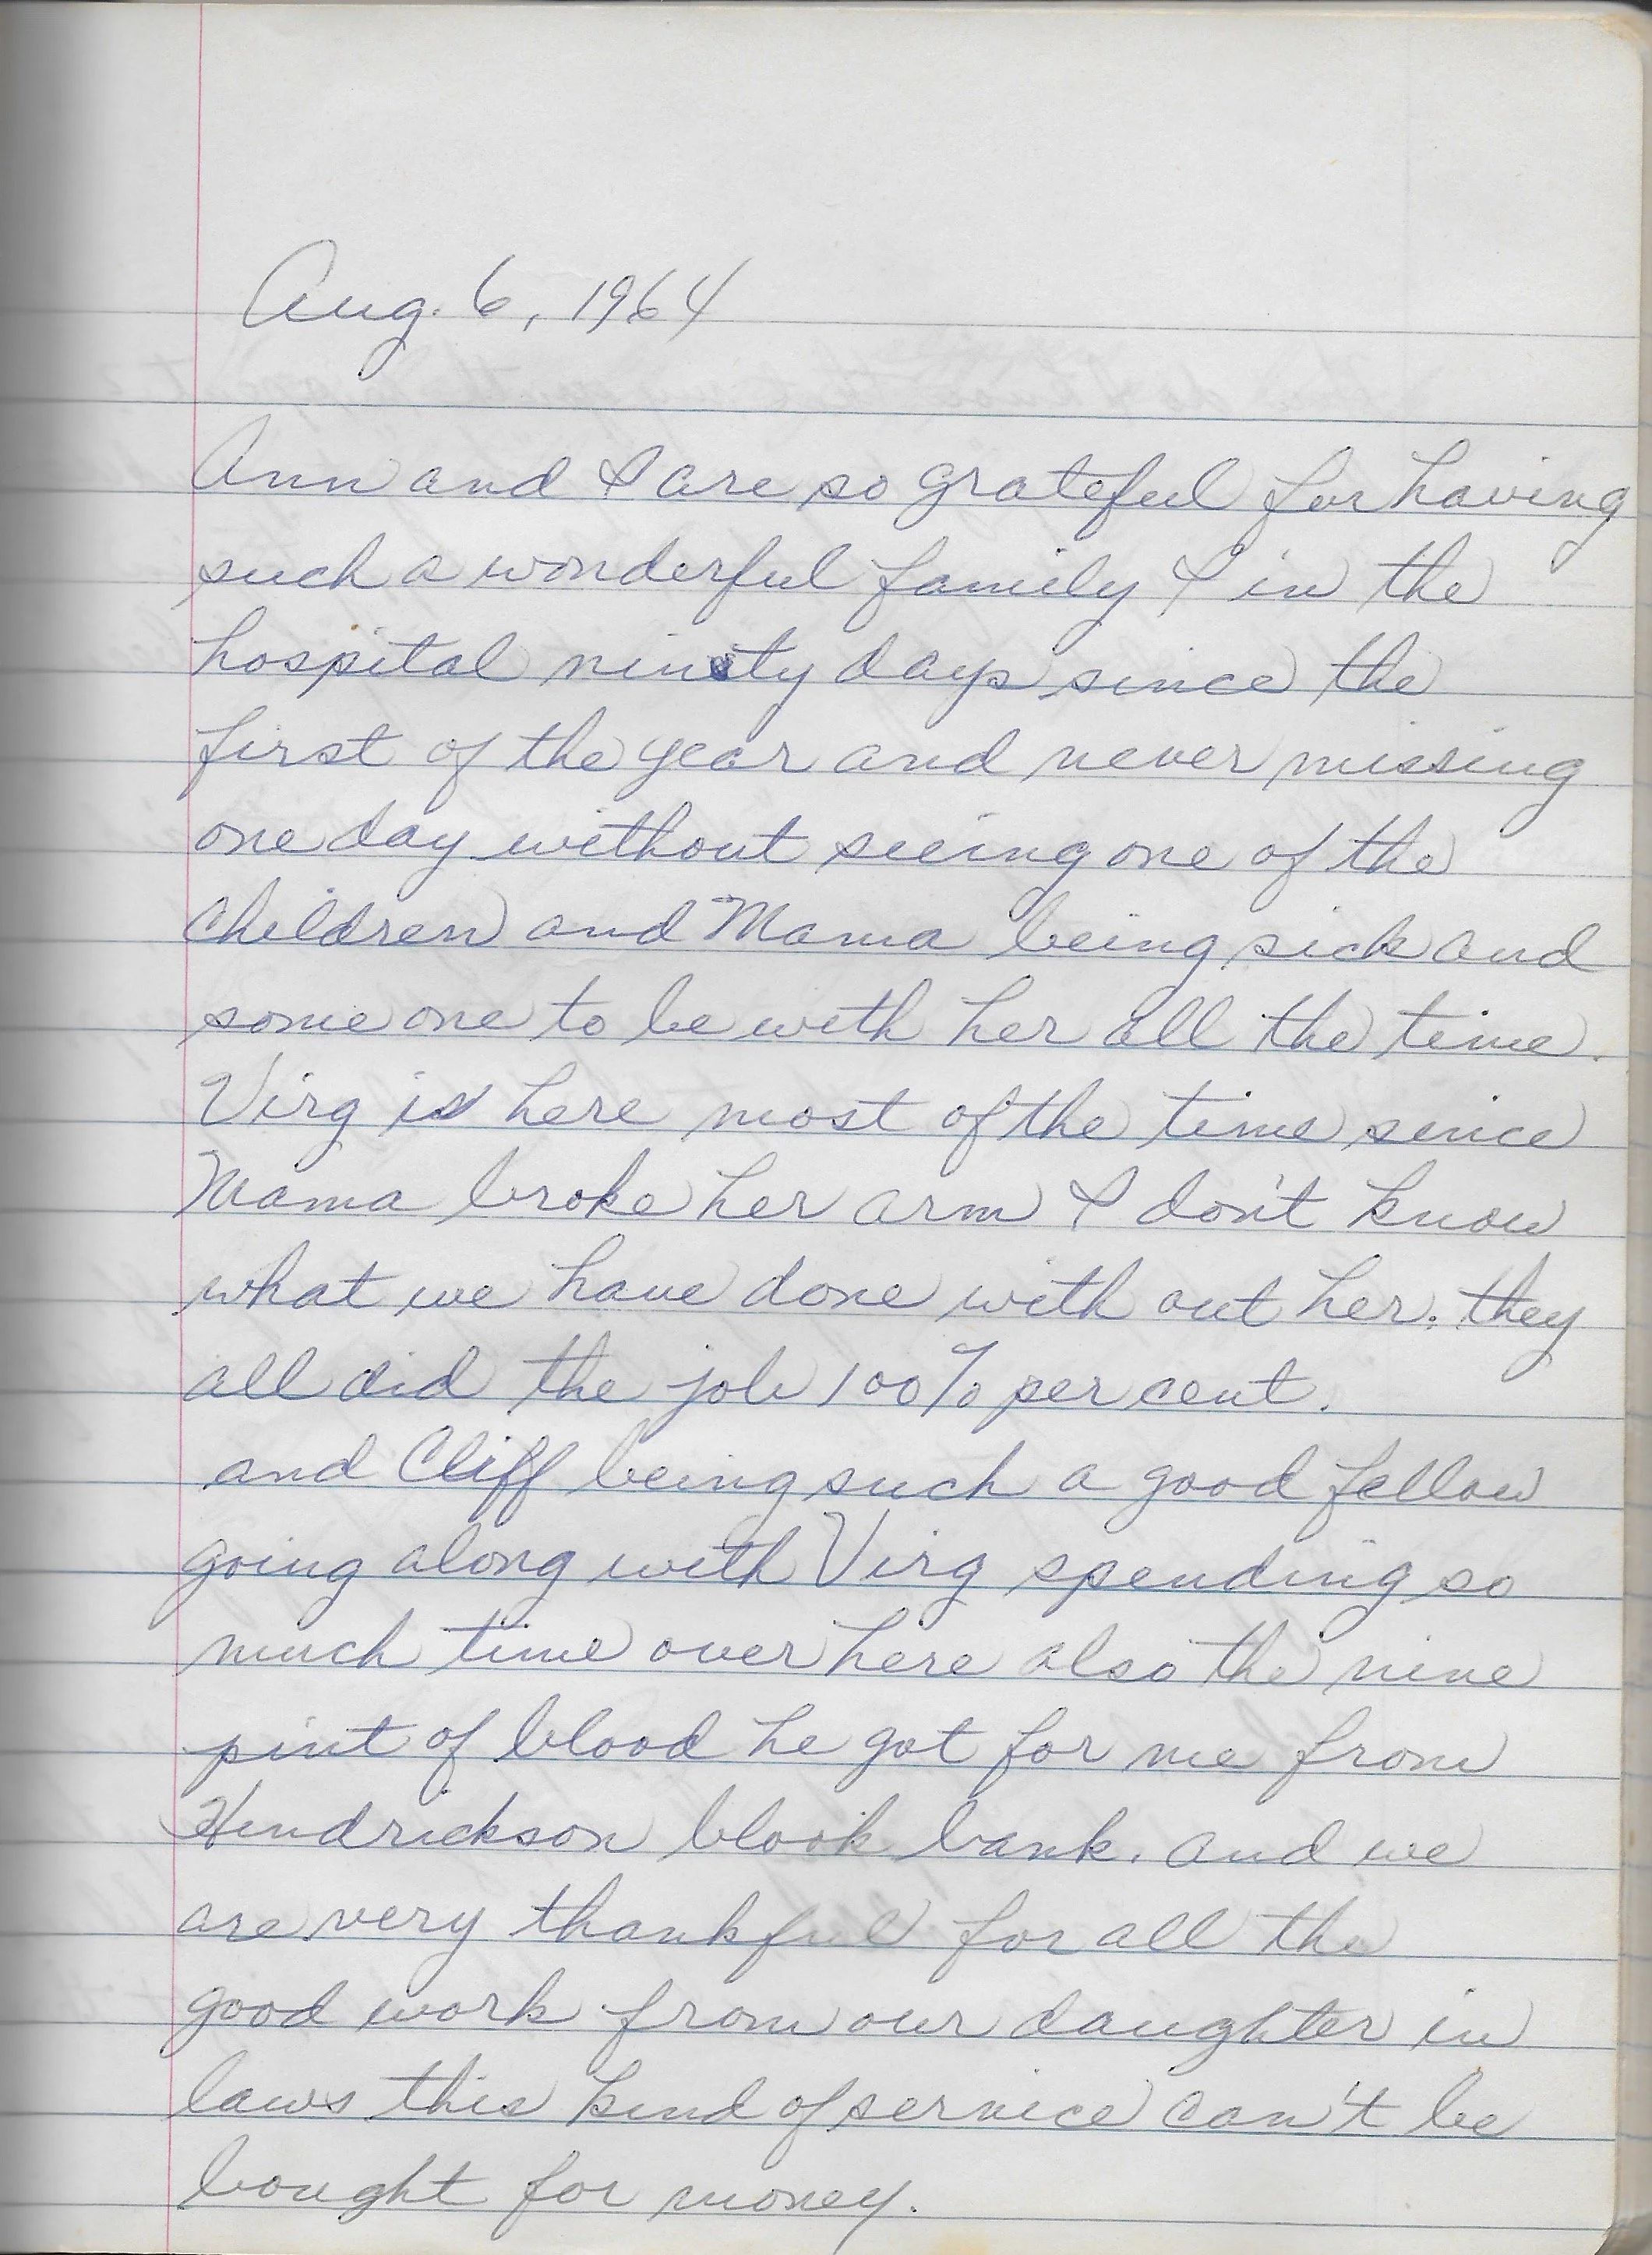 Aug. 6, 1964
Ann and I are so grateful for having
such a wonderful family I in the
hospital ninety days since the
first of the year and never missing
one day without seeing one of the
children and Mama being sick and
some one to be with her all the time.
Virg is here most of the time since
Mama broke her arm I don't know
what we have done with out her. they
all did the job 100% per cent.
and Cliff being such a good fellow
going along with Virg spending so
much time over here also the nine
pint of blood he got for me from
Hendrickson blook bank. and we
are very thankful for all the
good work from our daughter in
laws this kind of service can't be
bought for money.